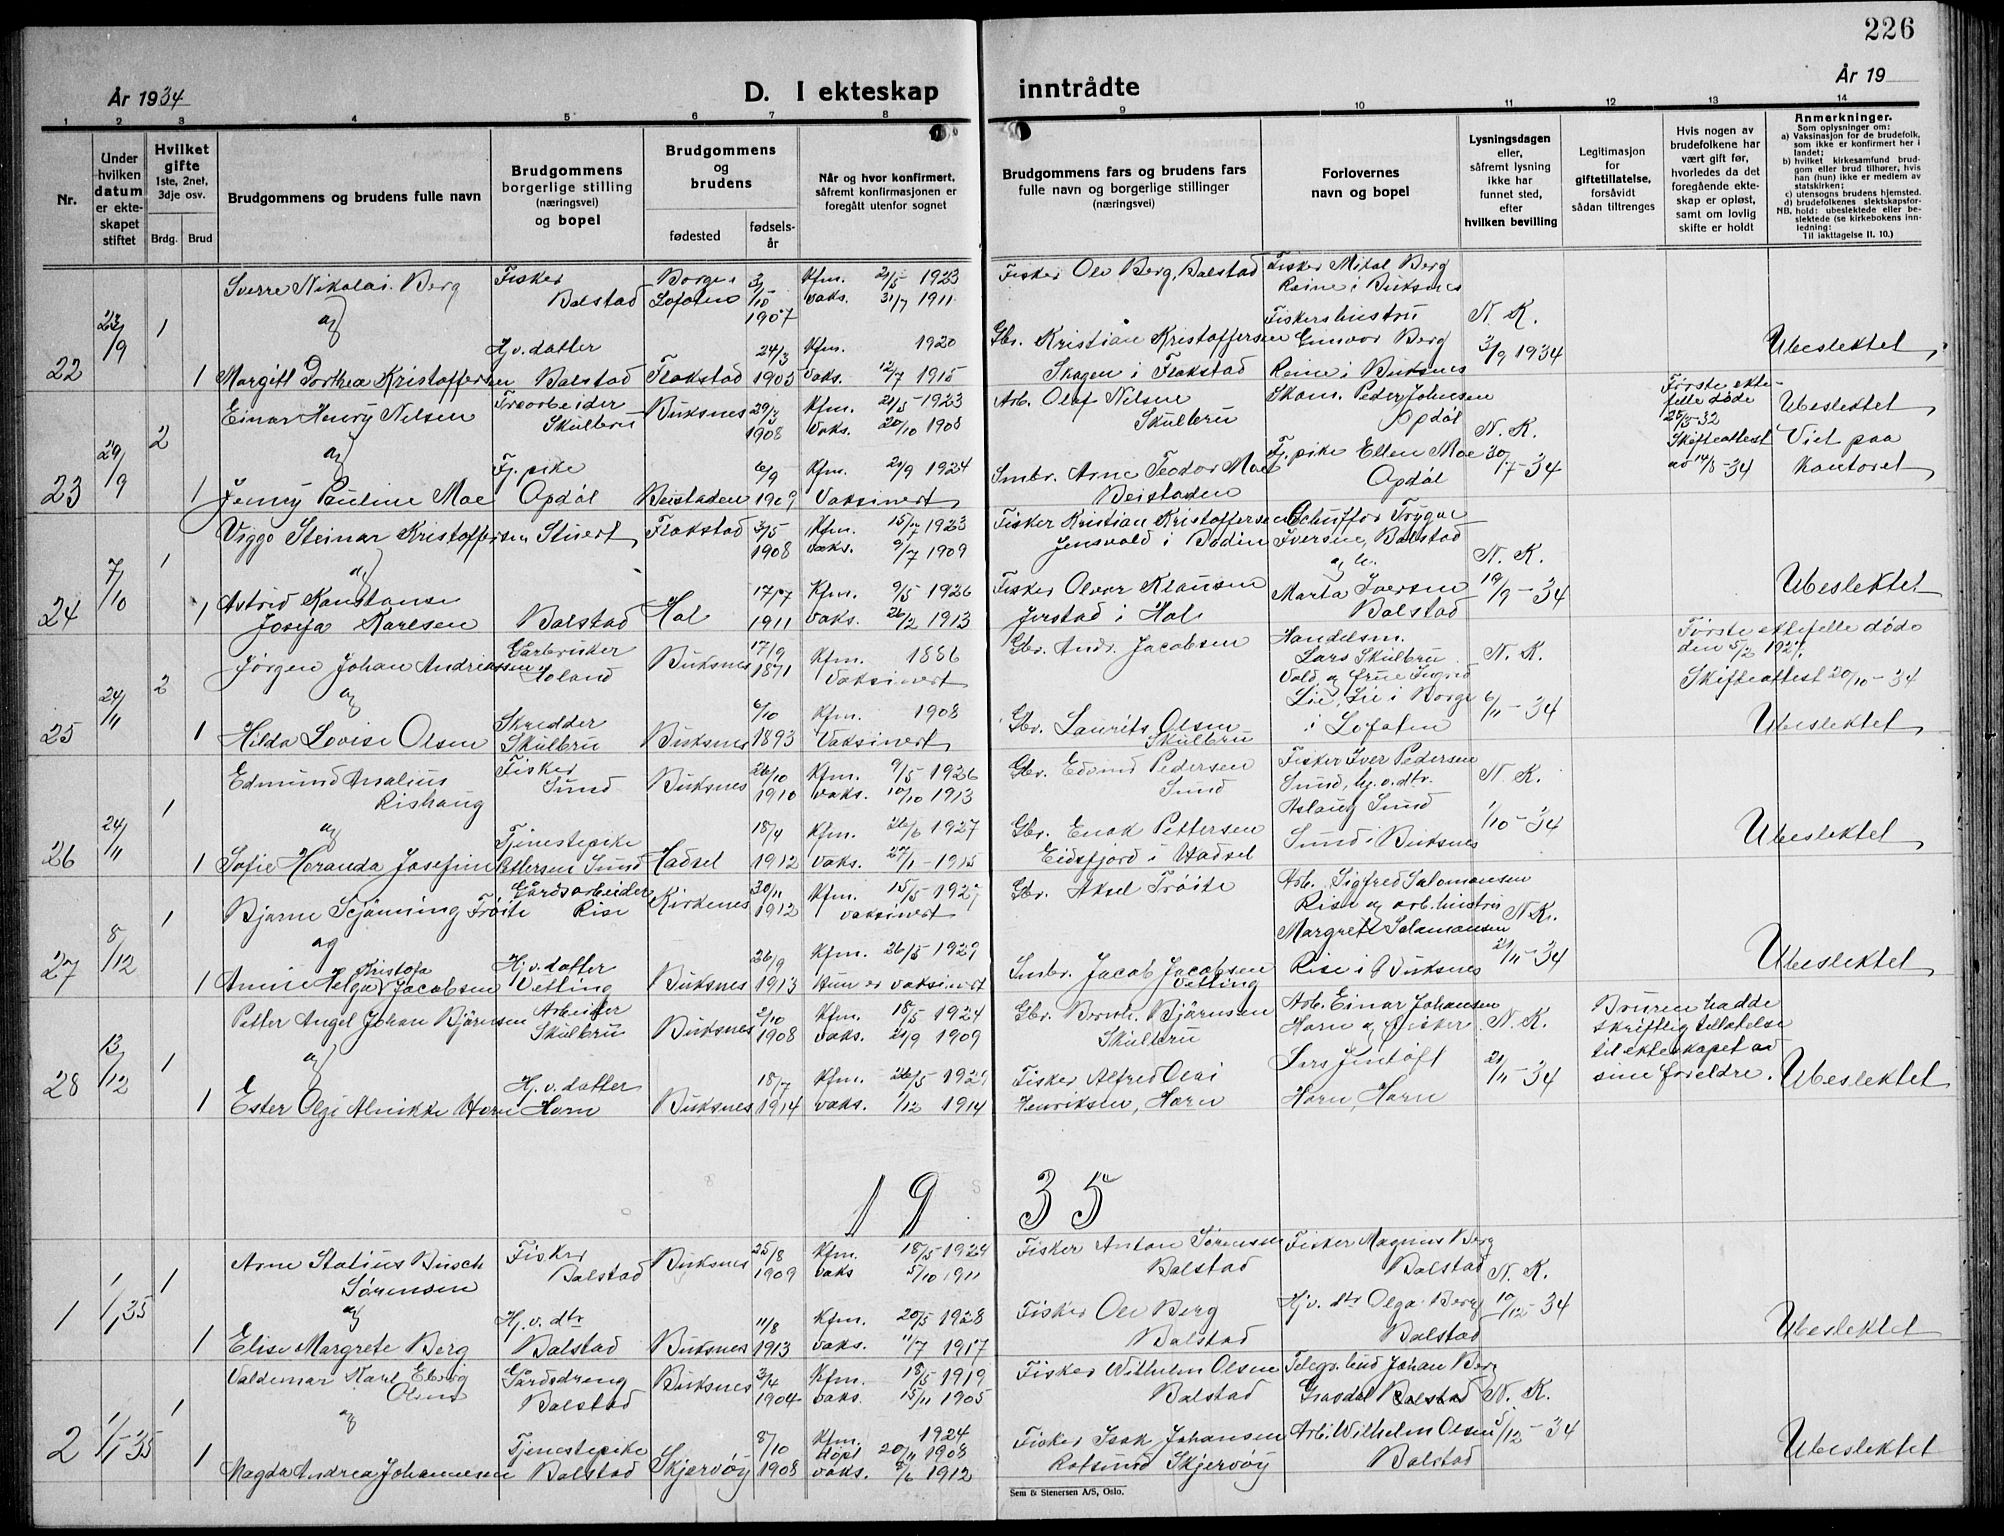 226
År 1934
D. I ekteskap
inntrådte
År 19
1 2 3 4 5 6 7 8 9 10 11 12 13 14
Nr.
Under hvilken datum er ekteskapet stiftet
Hvilket gifte
1ste, 2net, 3dje osv.
Brdg. Brud
Brudgommens og brudens fulle navn
Brudgommens borgerlige stilling (næringsvei) og bopel
Brudgommens og brudens
fødested
fødselsår
Når og hvor konfirmert, såfremt konfirmasjonen er foregått utenfor sognet
Brudgommens fars og brudens fars fulle navn og borgerlige stillinger (næringsvei)
Forlovernes navn og bopel
Lysningsdagen eller, såfremt lysning ikke har funnet sted, efter hvilken bevilling
Legitimasjon for giftetillatelse, forsåvidt sådan tiltrenges
Hvis nogen av brudefolkene har vært gift før, hvorledes da det foregående ekteskap er opløst, samt om lovlig skifte er holdt
Anmerkninger.
Som oplysninger om:
a) Vaksinasjon for de brudefolk, som ikke er konfirmert her i landet;
b) hvilket kirkesamfund brudgom eller brud tilhører, hvis han (hun) ikke er medlem av statskirken;
c) utensogns brudens hjemsted.
d) brudefolkenes slektskapsforhold: ubeslektede eller beslektede (se kirkebokens innledning:
NB. Til iakttagelse II. 10.)
22 23/9 1 Sverre Nikolai Berg Fisker Balstad Borge i Lofoten 1907 Kfm. 21/5 1923 vaks. 31/7 1911 Fisker Ole Berg, Balstad Fisker Mikal Berg Reine i Buksnes
og
1 Margitt Dorthea Kristoffersen Hj.v. datter Balstad Flakstad 24/3 1905 Kfm. 1920 vaks. 12/7 1915 Gbr. Kristian Kristoffersen Skagen i Flakstad Fiskershustru Gunvor Berg Reine i Buksnes N. K. 3/9 1934 Ubeslektet
23 29/9 2 Einar Henry Nilsen Treorbeider Skulbru Buksnes 29/3 1908 Kfm. 21/5 1923 Vaks. 20/10 1908 Arb. Olaf Nilsen Skulbru Skom. Peder Johnsen Opdøl N. K. Første ektefelle døde 25/5-32 Skifteattest av 14/8-34 Ubeslektet
og
1 Jenny Pauline Moe Fj. pike Opdøl Beistaden 6/9 1909 Kfm. 21/9 1924 Vaksinert Smbr. Arne Teodor Moe Beistaden Fj. pike Ellen Moe Opdøl 30/7-34 Viet paa kontoret
24 7/10 1 Viggo Steinar Kristoffersen Stuert Flakstad 3/5 1908 Kfm. 15/7 1923 vaks. 9/7 1909 Fisker Kristian Kristoffersen Jensvold i Bodin Schuffør Trygve Iversen, Balstad N. K.
og
1 Astrid Konstanse Josefa Karlsen Balstad Hol 17/7 1911 Kfm. 9/5 1926 vaks. 26/2 1913 Fisker Olvor Klausen Jerstad i Hol Marta Iversen Balstad 19/9-34 Ubeslektet
25 24/11 2 Jørgen Johan Andreassen Gårbruker Holand Buksnes 17/9 1871 Kfm. 1886 Vaksinert Gbr. Andr. Jacobsen Handelsm. Lars Skulbru N. K. Første ektefelle døde den 5/2 1927. Skifteattest 20/10-34
og
1 Hilda Lovise Olsen Skredder Skulbru Buksnes 6/10 1893 Kfm. 1908 Vaksinert Gbr. Laurits Olsen Skulbru Vold og frue Ingrid Lie, Lie i Borge i Lofoten 6/11-34 Ubeslektet
26 24/11 1 Edmund Amalius Rishaug Fisker Sund Buksnes 26/10 1910 Kfm. 9/5 1926 vaks. 10/10 1913 Gbr. Edvind Pedersen Sund Fisker Iver Pedersen Sund, hj.v.dtr. N. K.
og
1 Sofie Heranda Josefine Pettersen Tjenestepike Sund Hadsel 18/4 1912 Kfm. 26/6 1927 vaks. 27/1-1915 Gbr. Enok Pettersen Eidsfjord i Hadsel Aslaug Sund Sund i Buksnes 1/10-34 Ubeslektet
27 8/12 1 Bjarne Scjønning Trøite Gårdsarbeider Rise Kirkenes 30/11 1912 Kfm. 15/5-1927 vaksinert Gbr. Aksel Trøite Arb. Sigfred Salomonsen Rise og arb.hustru N. K.
og
1 Annie Helga Kristofa Jacobsen Hj.v. datter Vetting Buksnes 26/9 1913 Kfm. 26/5 1929 Hun er vaksinert Smbr. Jacob Jacobsen Vetting Margrett Salamonsen Rise i Buksnes 21/11-34 Ubeslektet
28 13/12 1 Petter Angel Johan Bjørnsen Arbeider Skulbru Buksnes 2/10 1908 Kfm. 18/5 1924 vaks. 21/9 1909 Gbr. Bernh. Bjørnsen Skulbru Arb. Einar Johansen Horn og fisker N. K. Bruren hadde skriftlig tillatelse til ekteskapet av sine foreldre.
og
1 Ester Olgi Alvikke Horn Hj.v. datter Horn Buksnes 18/7 1914 Kfm. 26/5 1929 vaks. 1/12 1914 Fisker Alfred Olai Henriksen, Horn Lars Jentoft Horn, Horn 21/11-34 Ubeslektet
19 35
1 1/1 35 1 Arne Stalius Busch Sørensen Fisker Balstad Buksnes 25/8 1909 Kfm. 18/5 1924 vaks 5/10 1911 Fisker Anton Sørensen Balstad Fisker Magnus Berg Balstad N. K.
og
1 Elise Margrete Berg Hj.v. dtr Balstad Buksnes 11/8 1913 Kfm. 20/5 1928 vaks. 11/7 1917 Fisker Ole Berg Balstad Hj.v. dtr Olga Berg Balstad 10/12-34 Ubeslektet
2 1/1-35 1 Valdemar Karl Elvig Olsen Gårdsdreng Balstad Buksnes 3/4 1904 Kfm. 18/5 1919 vaks. 15/11 1905 Fisker Wilhelm Olsen Balstad Telegr.bud Johan Berg Gravdal Balstad N. K.
og
1 Magda Andrea Johannesen Tjenestepike Balstad Skjervøy 8/10 1908 Kfm. 1924 døpt 20/11 1908 vaks. 8/6 1912 Fisker Isak Johansen Rotsund Skjervøy Arb. Wilhelm Olsen Balstad 5/12-34 Ubeslektet
Sem & Stenersen A/S, Oslo.